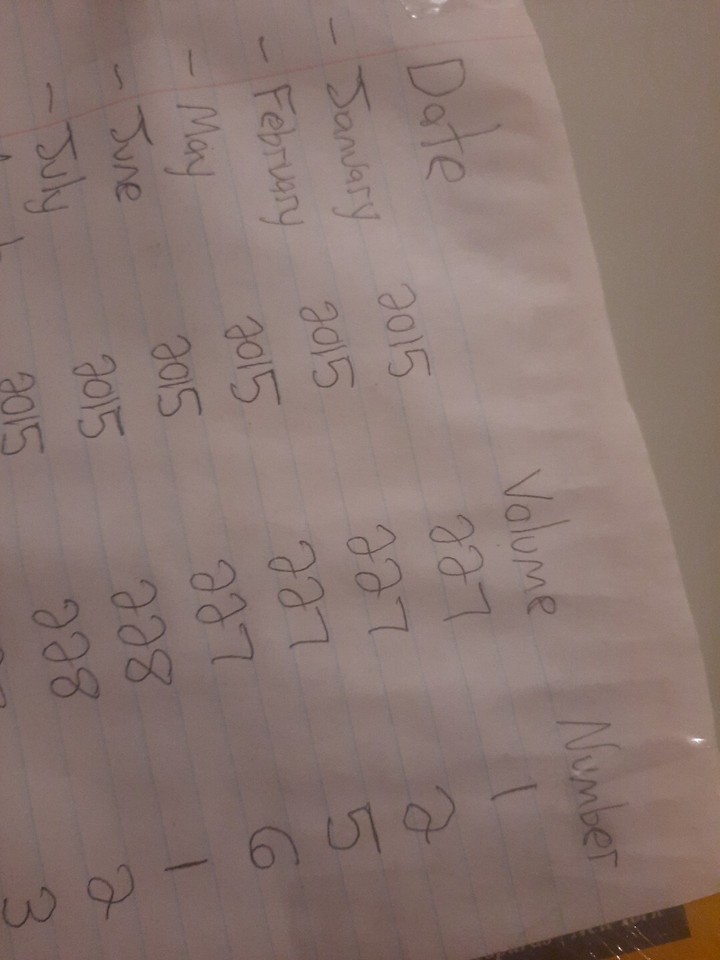 Date Volume Number
- January 2015 227 1
- February 2015 227 2
- May 2015 227 5
- June 2015 227 6
- July 2015 228 1
2015 228 2
3